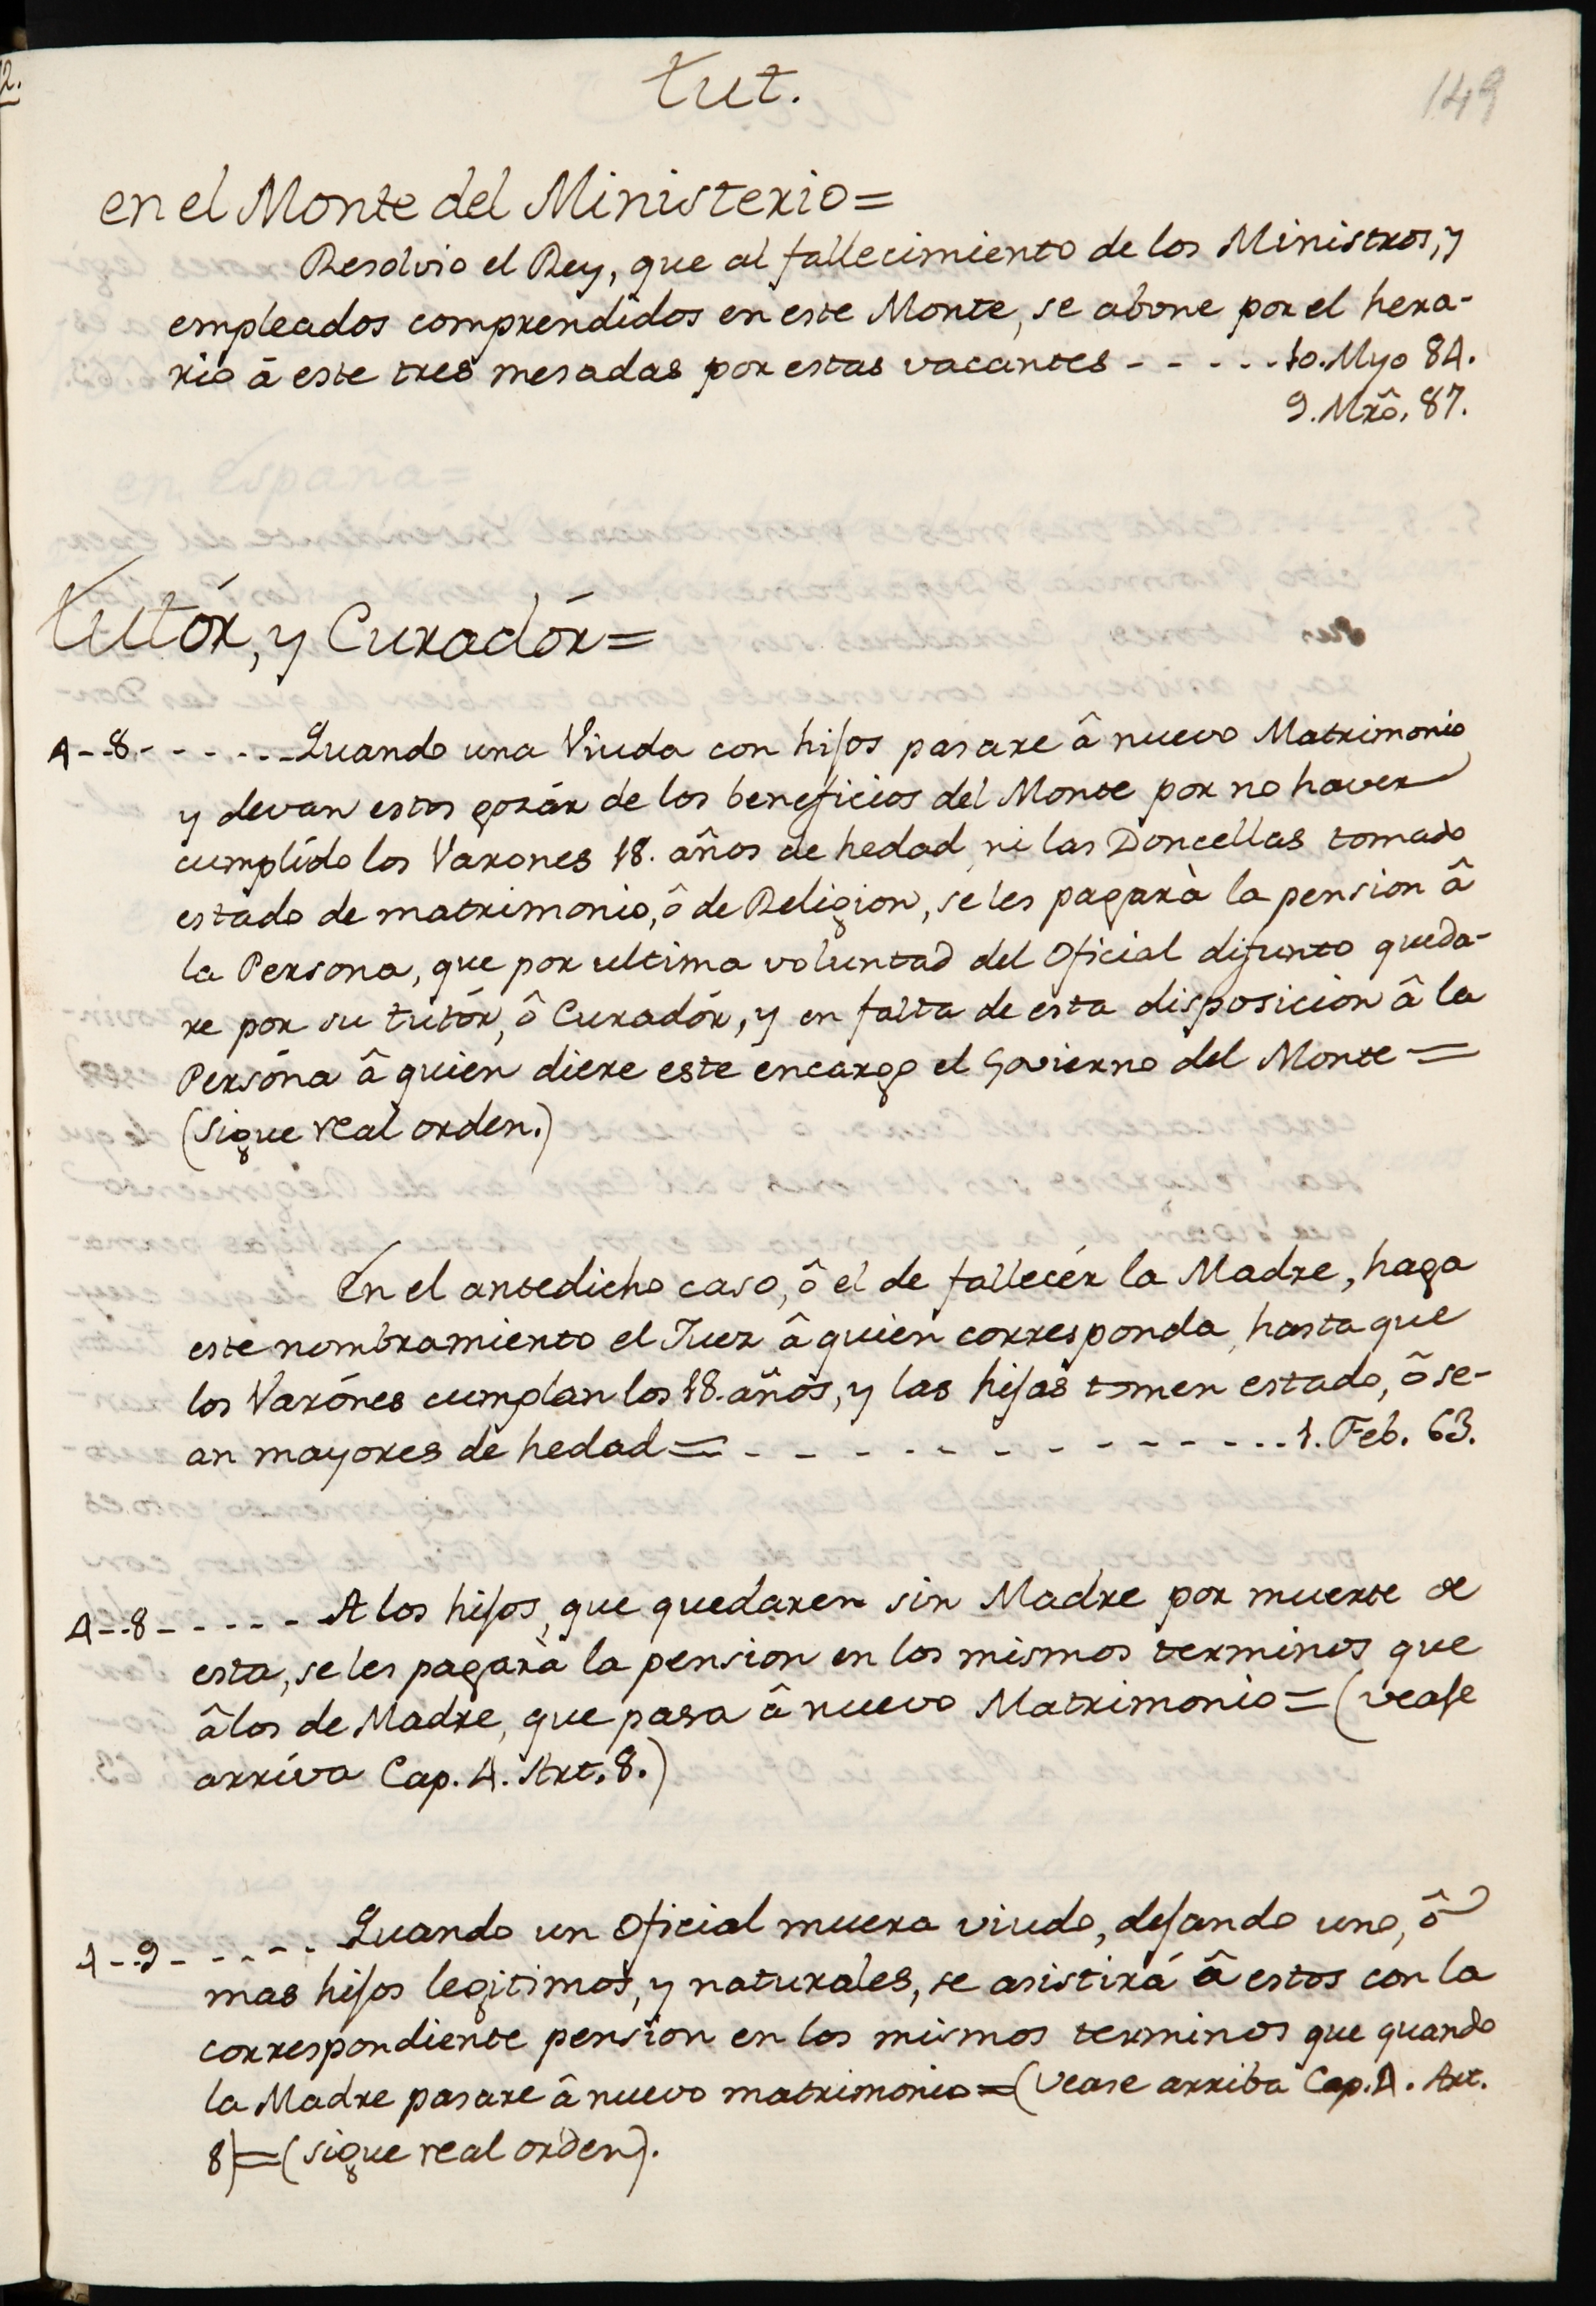 tut.
149
en el Monte del Ministerio=
Resolvio el Rey, que al fallecimiento de los Ministros, y
empleados comprendidos en este Monte, se abone por el hera-
rio á este tres mesadas por estas vacantes - - - - - 10. Myo 84.
9. Mrô. 87.
Tutór, y Curadór=
4 - - 8 - - - - - - Quando una Viuda con hijos pasare â nuevo Matrimonio
y devan estos gozár de los beneficios del Monte por no haver
cumplído los Varones 18. años de hedad, ni las Doncellas tomado
estado de matrimonio, ô de Religion, se les pagarà la pension â
la Persona, que por ultima voluntad del Oficial difunto queda-
re por su tutór, ô Curadór, y en falta de esta disposicion â la
Persóna â quien diere este encargo el Govierno del Monte =
(sigue real orden.)
En el antedicho caso, ô el de fallecér la Madre, haga
este nombramiento el Juez â quien corresponda, hasta que
los Varónes cumplan los 18. años, y las hijas tomen estado, ô se-
an mayores de hedad = - - - - - - - - - - - - 1. Feb. 63.
4 - - 8 - - - - - A los hijos, que quedaren sin Madre por muerte de
esta, se les pagarà la pension en los mismos terminos que
â los de Madre, que pasa â nuevo Matrimonio = (vease
arríva Cap. 4. Art. 8.)
4 - - 9 - - - - - Quando un Oficial muera viudo, dejando uno, ô
mas hijos legitimos, y naturales, se asistirá â estos con la
correspondiente pension en los mismos terminos que quando
la Madre pasare â nuevo matrimonio = (vease arriba Cap. 4. Art.
8) = (sigue real orden).